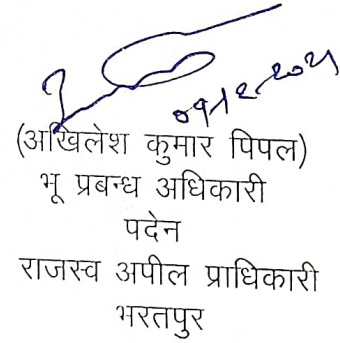 09/12/2021
(अखिलेश कुमार पिपल)
भू प्रबन्ध अधिकारी
पदेन
राजस्व अपील प्राधिकारी
भरतपुर